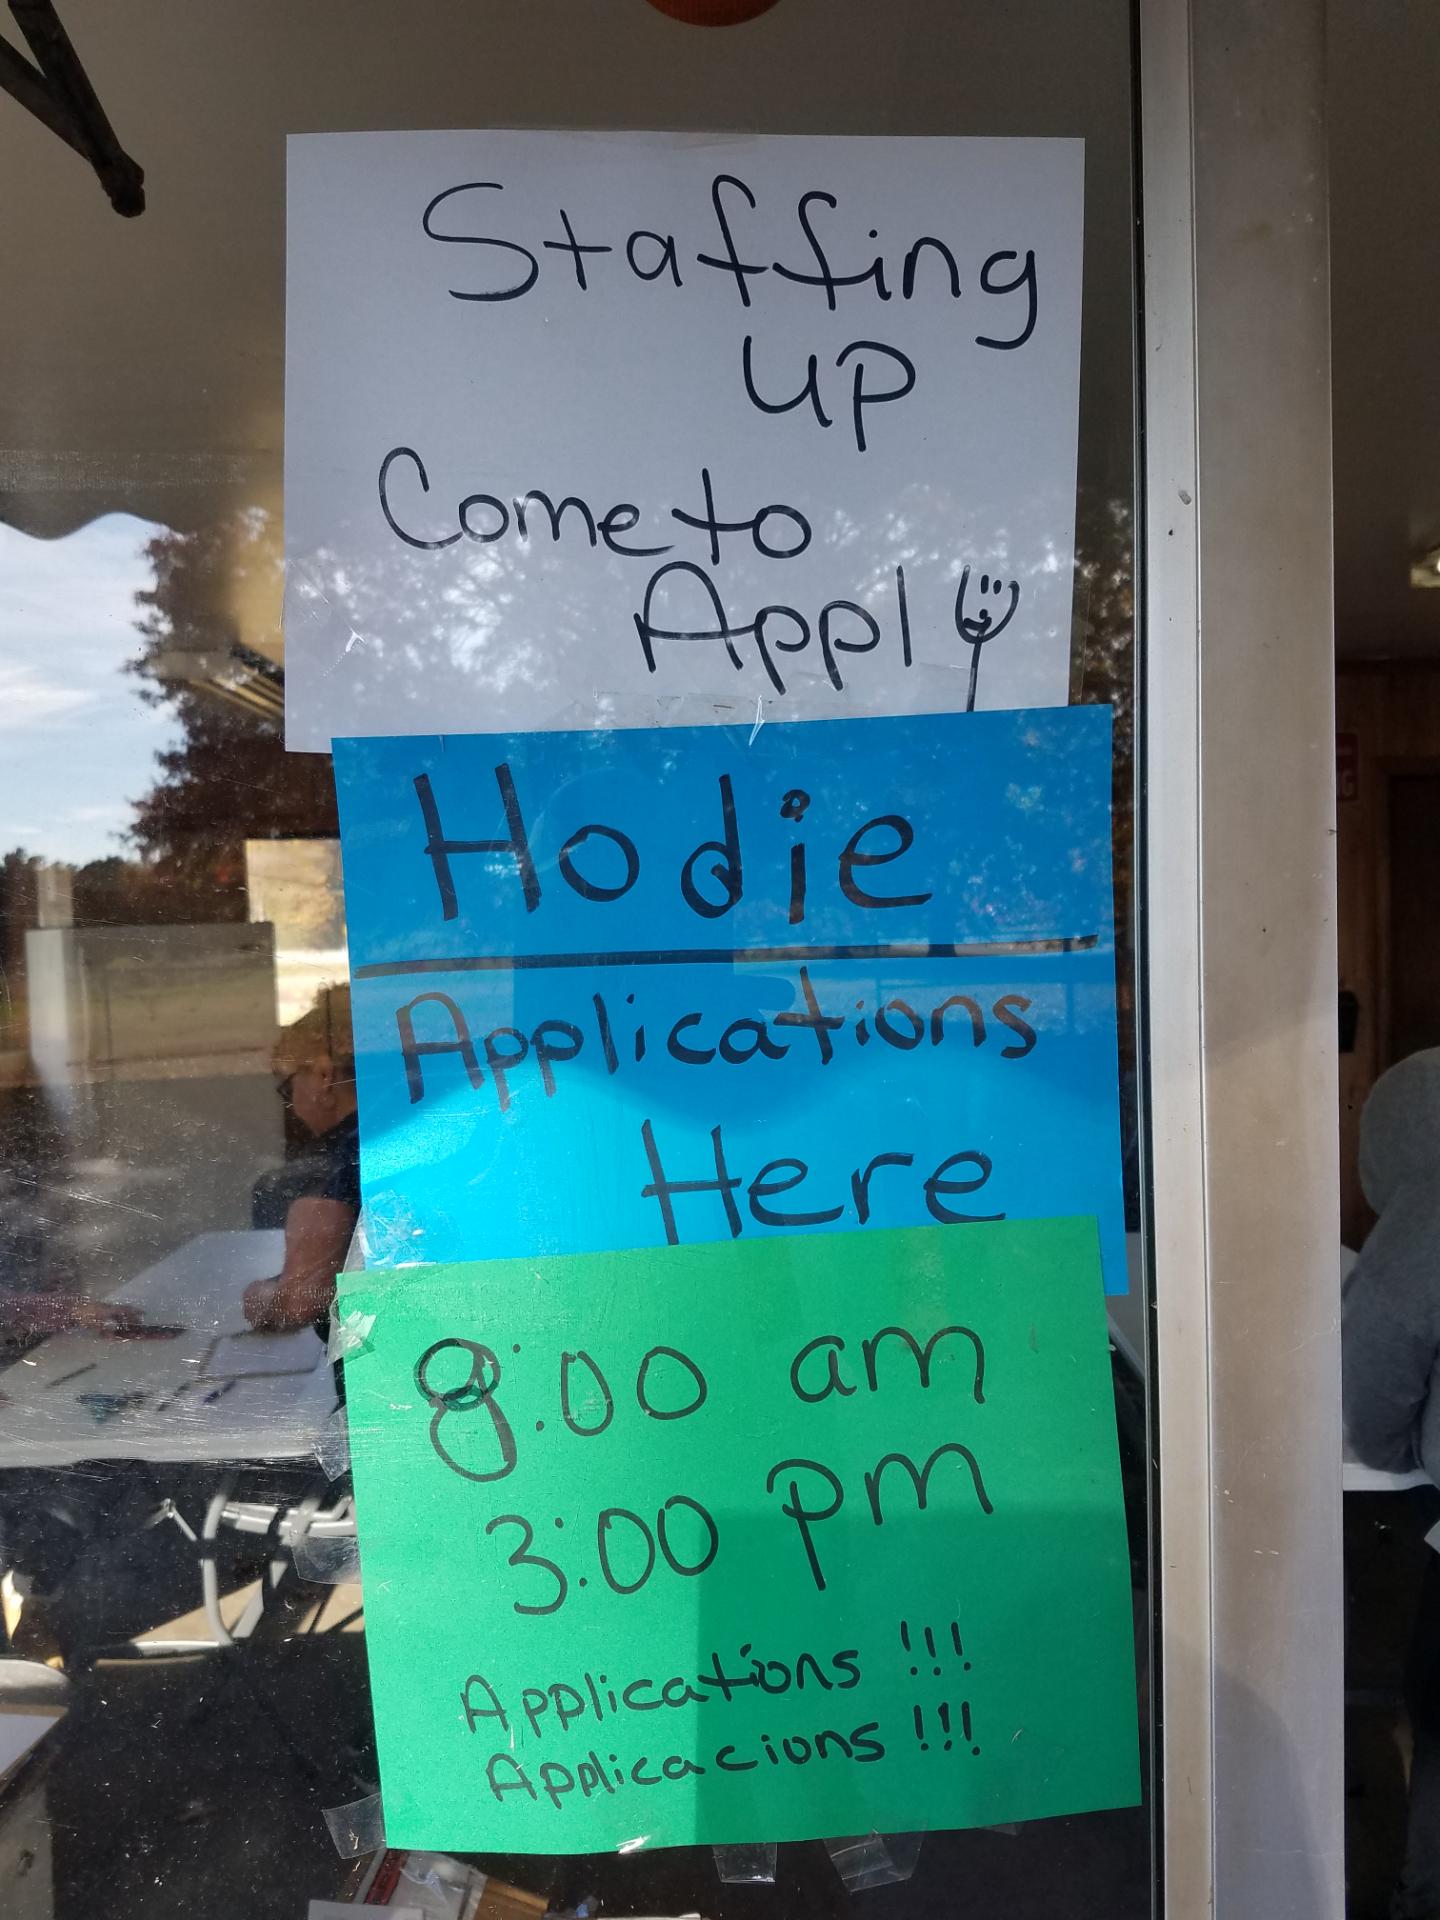 Staffing
up
Come to
Apply
Hodie
Applications
Here
8:00 am
3:00 pm
Applications !!!
Applicacions !!!